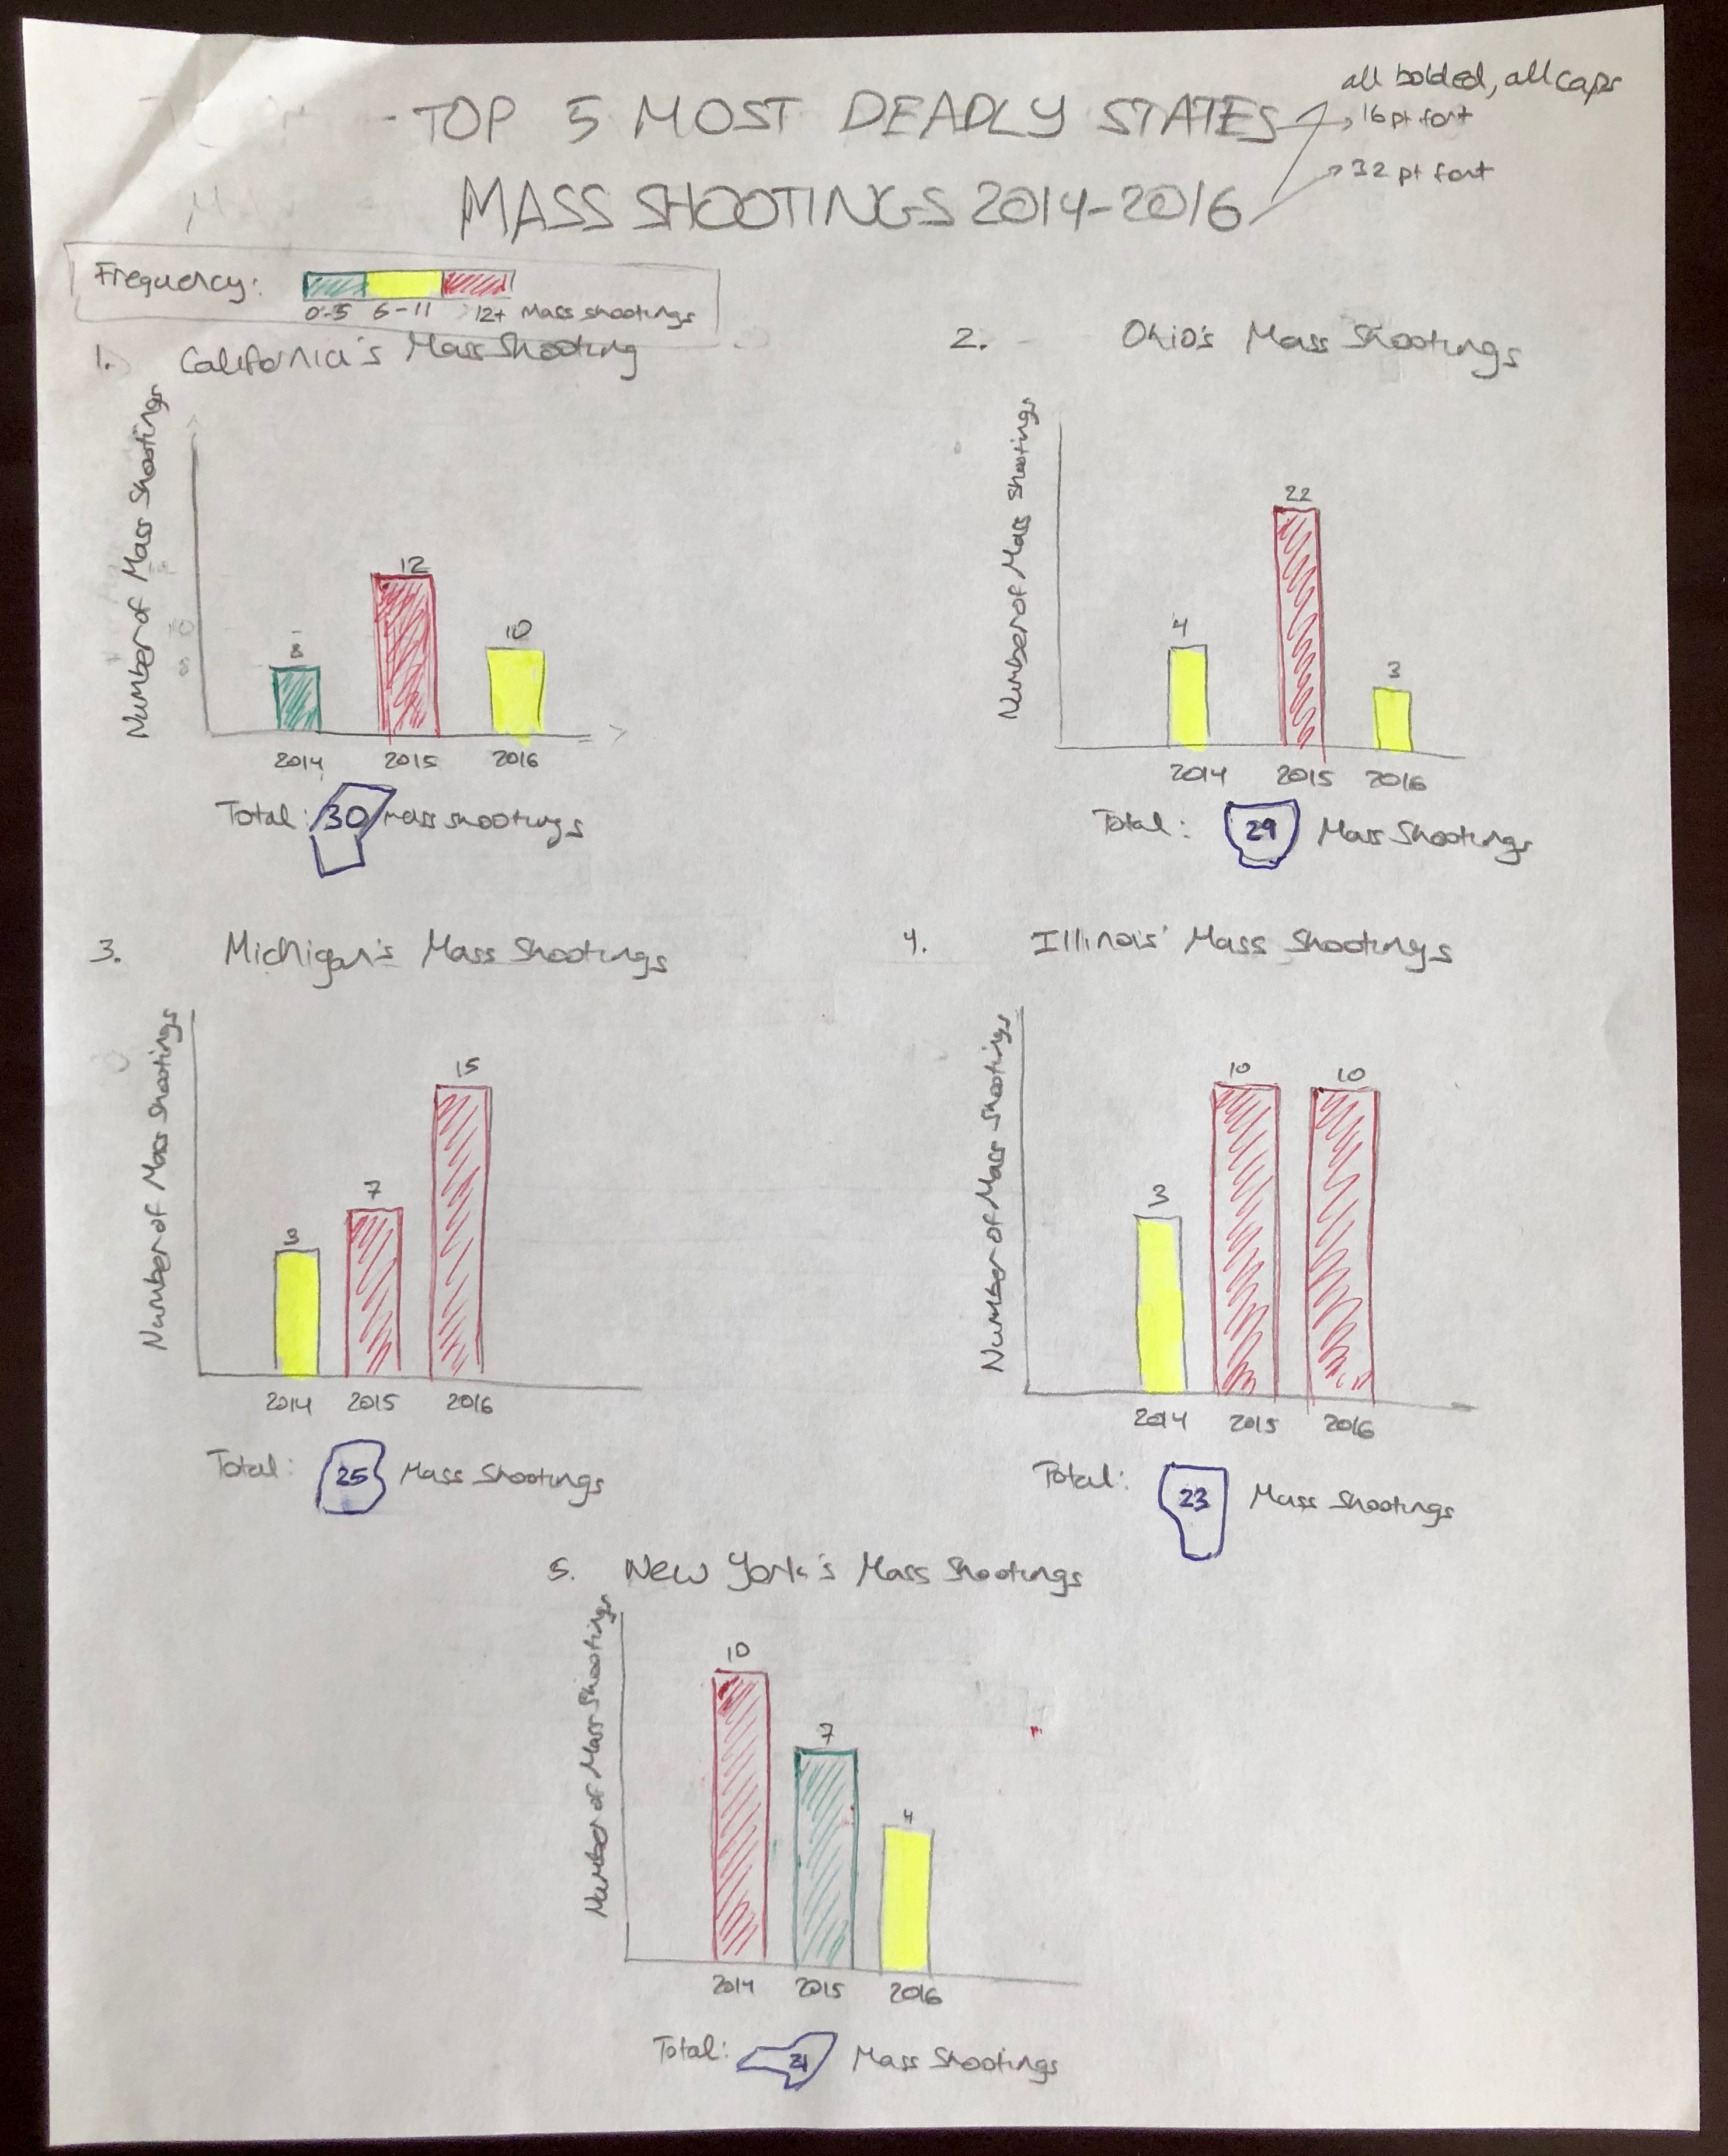 TOP 5 MOST DEADLY STATES
all bolded, all caps
16 pt font
MASS SHOOTINGS 2014-2016
32 pt font
Frequency:
0-5 6-11 12+ Mass shootings
1. California's Mass Shooting
Number of Mass Shootings
10
5
8
12
10
2014 2015 2016
Total: 30 mass shootings
2. Ohio's Mass Shootings
Number of Mass Shootings
4
22
3
2014 2015 2016
Total: 29 Mass Shootings
3. Michigan's Mass Shootings
Number of Mass Shootings
3
7
15
2014 2015 2016
Total: 25 Mass Shootings
4. Illinois' Mass Shootings
Number of Mass Shootings
3
10
10
2014 2015 2016
Total: 23 Mass Shootings
5. New York's Mass Shootings
Number of Mass Shootings
10
7
4
2014 2015 2016
Total: 21 Mass Shootings